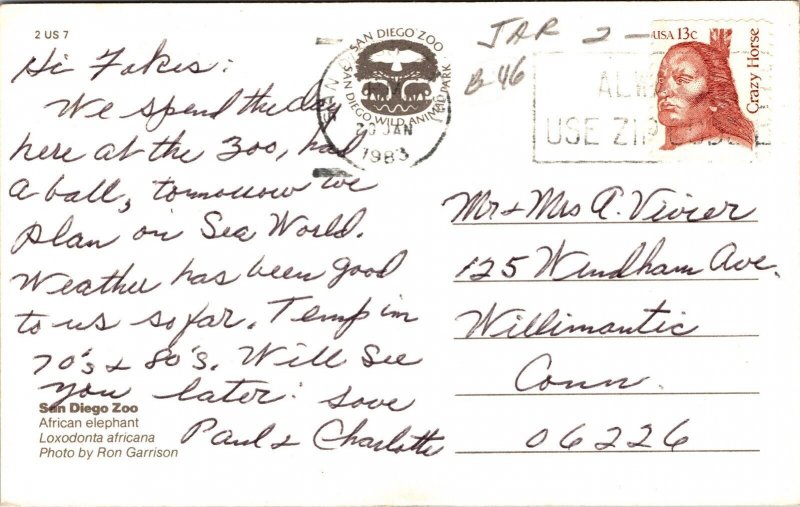 2 US 7
Hi Fokes:
We spend the day
here at the Zoo, had
a ball, tomorrow we
plan on Sea World.
Weather has been good
to us so far. Temp in
70's & 80's. Will See
you later. Love
Paul & Charlotte
San Diego Zoo
African elephant
Loxodonta africana
Photo by Ron Garrison
SAN DIEGO ZOO
SAN DIEGO WILD ANIMAL PARK
20 JAN
1983
JAR 2 —
B-46
USE ZIP
USA 13c
Crazy Horse
Mr & Mrs A. Vivier
125 Windham Ave.
Willimantic
Conn.
06226